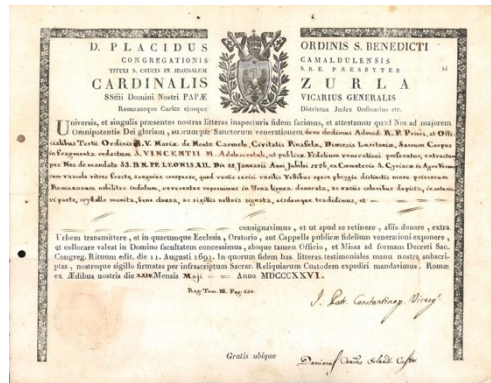 D. PLACIDUS ORDINIS S. BENEDICTI
CONGREGATIONIS CAMALDULENSIS
TITULI S. CRUCIS IN JERUSALEM S. R. E. PRESBYTER
CARDINALIS ZURLA
SSm̄i Domini Nostri PAPÆ VICARIUS GENERALIS
Romanæque Curiæ ejusque Districtus Judex Ordinarius etc.
Universis, et singulis præsentes nostras litteras inspecturis fidem facimus, et attestamur quod Nos ad majorem
Omnipotentis Dei gloriam, suorumque Sanctorum venerationem dono dedimus Admod. R. P. Priori, et Offi-
cialibus Tertii Ordinis B. V. Mariæ de Monte Carmelo, Civitatis Diœcesis Sacrum Corpus
in fragmenta redactum S. VINCENTII M. ut publicæ Fidelium venerationi extractum
per Nos de mandato SS. D. N. PP. LEONIS XII. Die Januarii Anni Jubilei e Cœmeterio S. Cyriacæ in Agro
cum vasculo vitreo fracto, sanguine resperso, quod variis sericis vestibus
Romanorum militum indutum, reverenter reposuimus in Urna lignea deaurata, ac variis coloribus depicta,
parte, crystallo munita, bene clausa, ac sigillis nostris signata, eisdemque tradidimus, et
consignavimus, et ut apud se retinere, aliis donare, extra
Urbem transmittere, et in quacumque Ecclesia, Oratorio, aut Cappella publicæ fidelium venerationi exponere,
ut collocare valeat in Domino facultatem concessimus, absque tamen Officio, et Missa ad formam Decreti Sac.
Congreg. Rituum edit. die 11. Augusti 1691. In quorum fidem has litteras testimoniales manu nostra subscrip-
tas, nostroque sigillo firmatas per infrascriptum Sacrar. Reliquiarum Custodem expediri mandavimus. Romæ
ex Ædibus nostris die XXIV Mensis Maji Anno MDCCCXXVI.
Reg. Tom. III. Pag.
J. Patr. Constantinop. Vicesg.
Gratis ubique